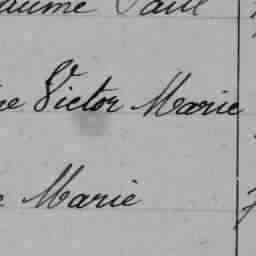 aume Paul
re Victor Marie
e Marie